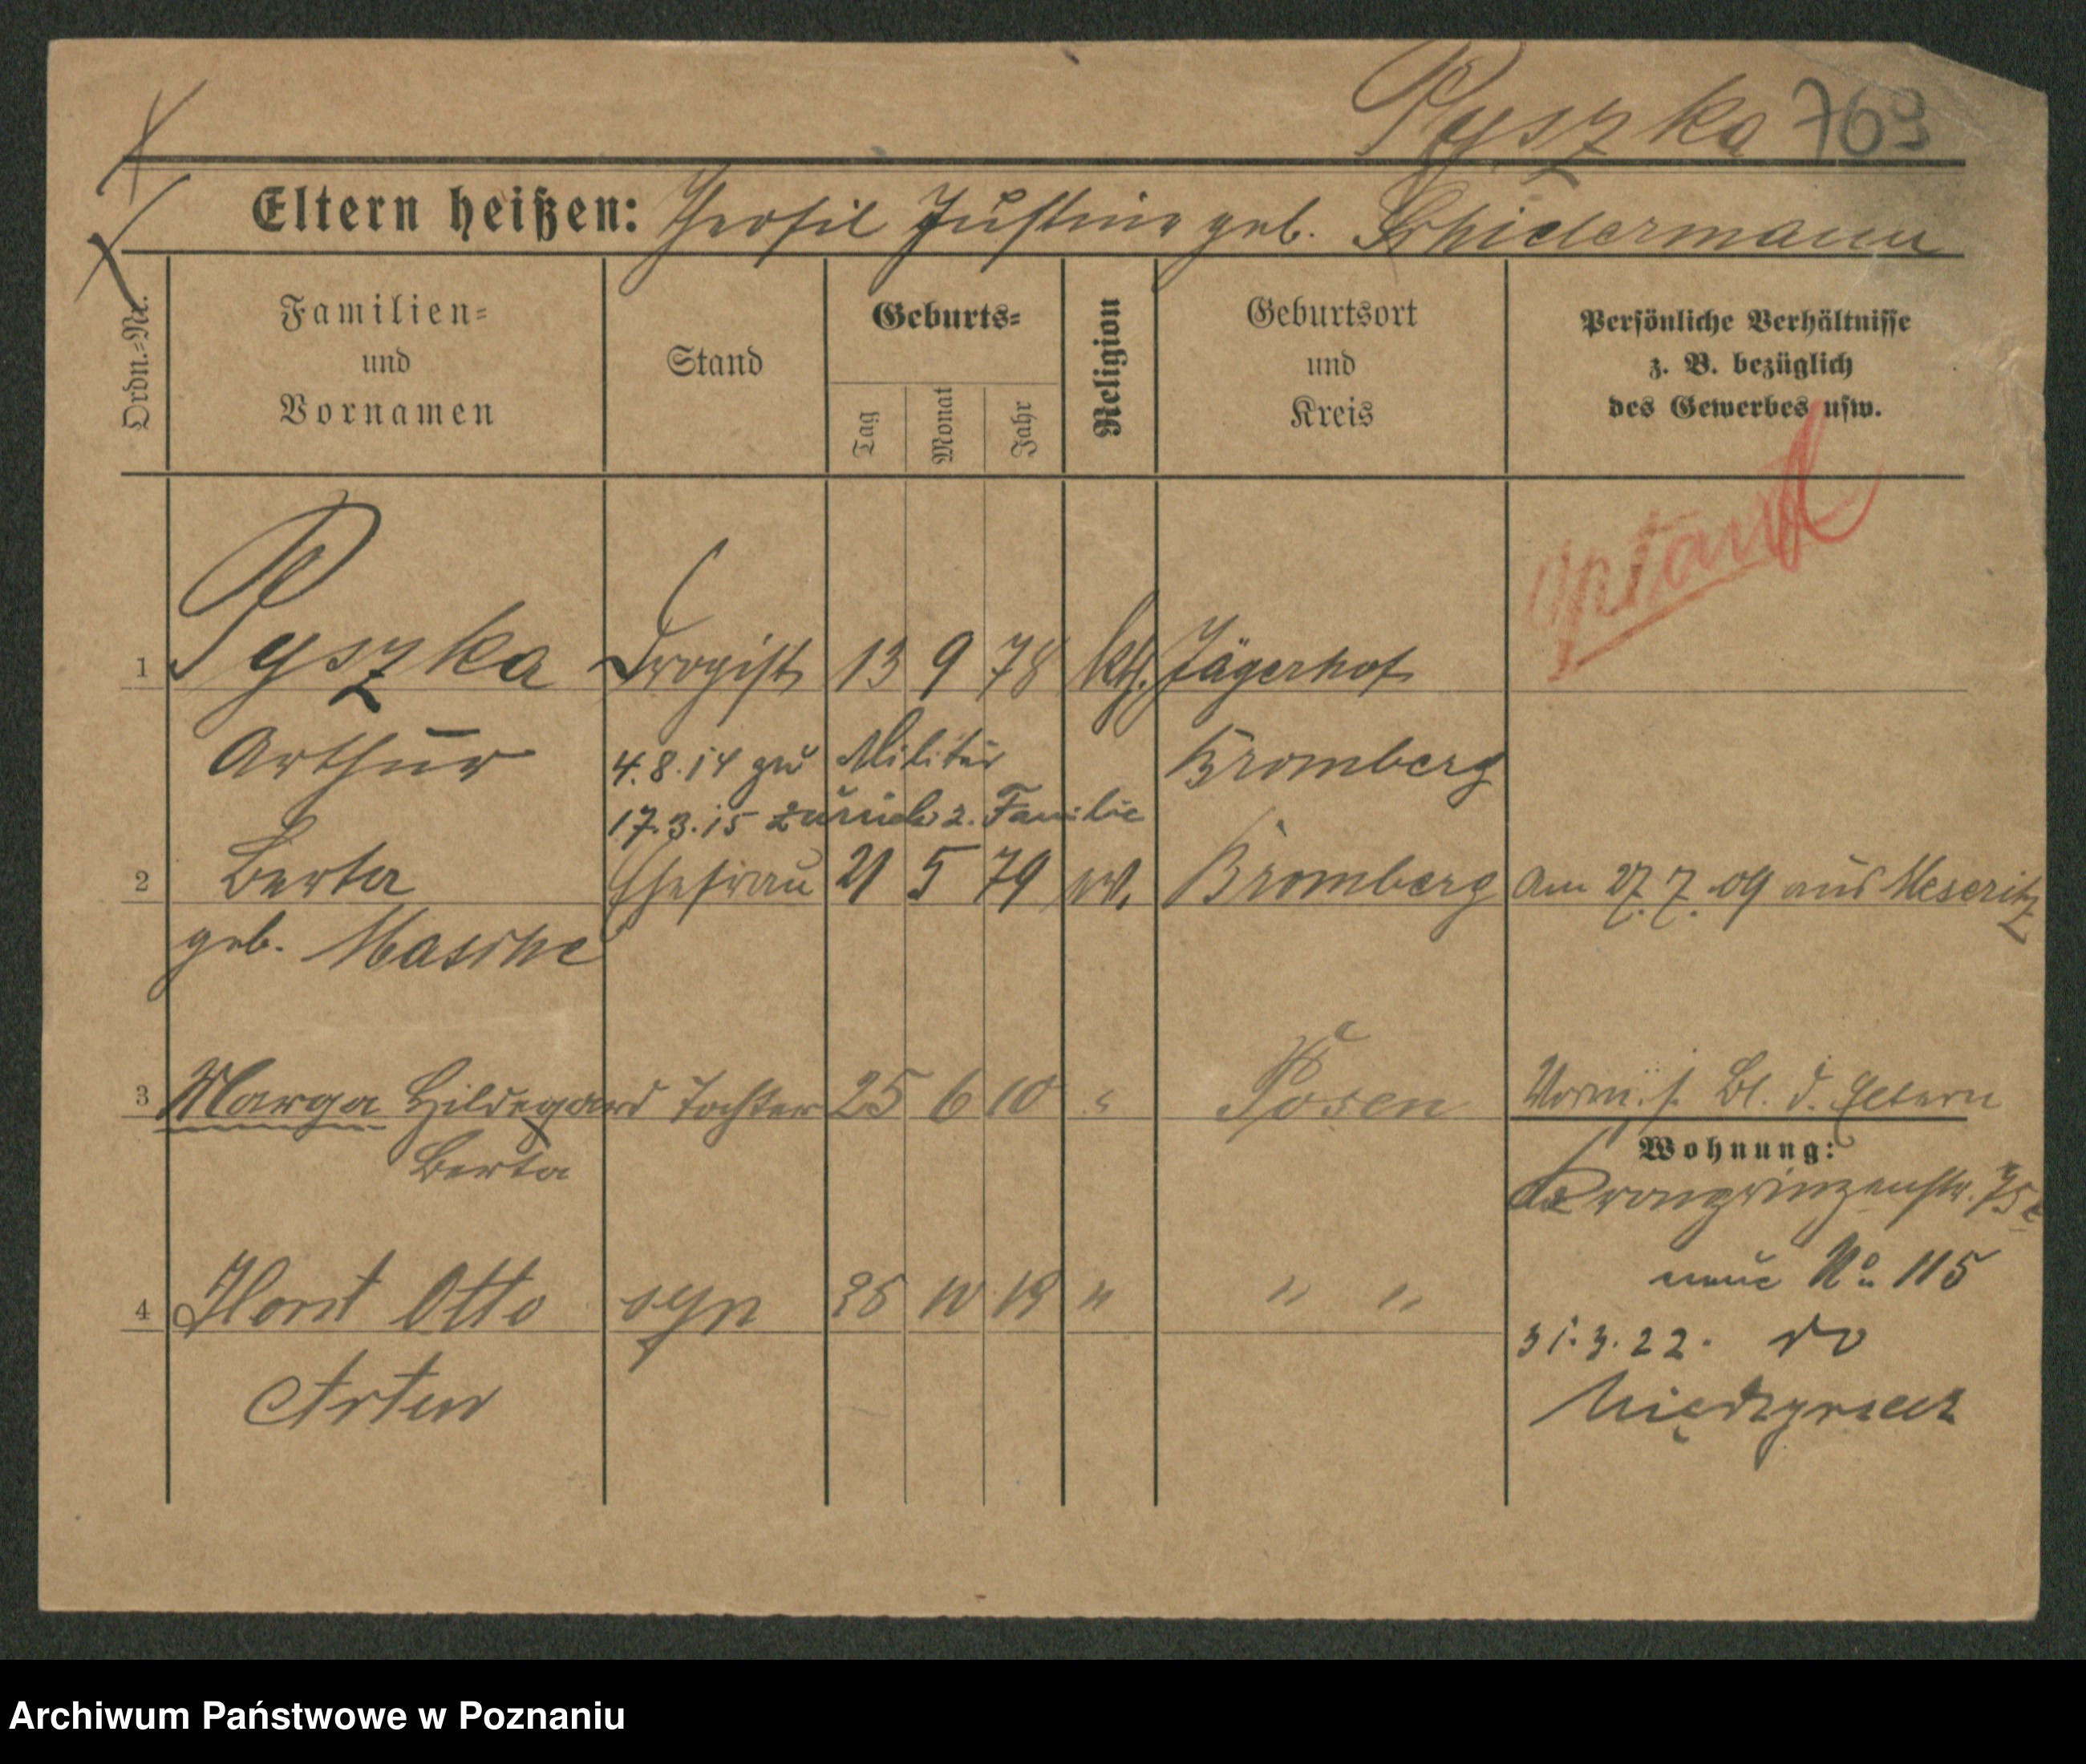 Pyszka 769
Eltern heißen: Theofil Justine geb. Schidermann
Ordn.=Nr.
Familien=
und
Vornamen
Stand
Geburts=
Tag
Monat
Jahr
Religion
Geburtsort
und
Kreis
Persönliche Verhältnisse
z. B. bezüglich
des Gewerbes usw.
Optant
1 Pyszka Drogist 13 9 78 kth. Jägerhof
Arthur 4.8.14 zu Militär Bromberg
17.3.15 zurück z. Familie
2 Berta Ehefrau 21 5 79 ev. Bromberg Am 27.7.09 aus Meseritz
geb. Masche
3 Marga Hildegard Tochter 25 6 10 " Posen Vorm. s. Bl. d. Eltern
Berta
Wohnung:
Kronprinzenstr.
neue No 115
4 Horst Otto syn 10 19 " " "
31.3.22. do
Artur